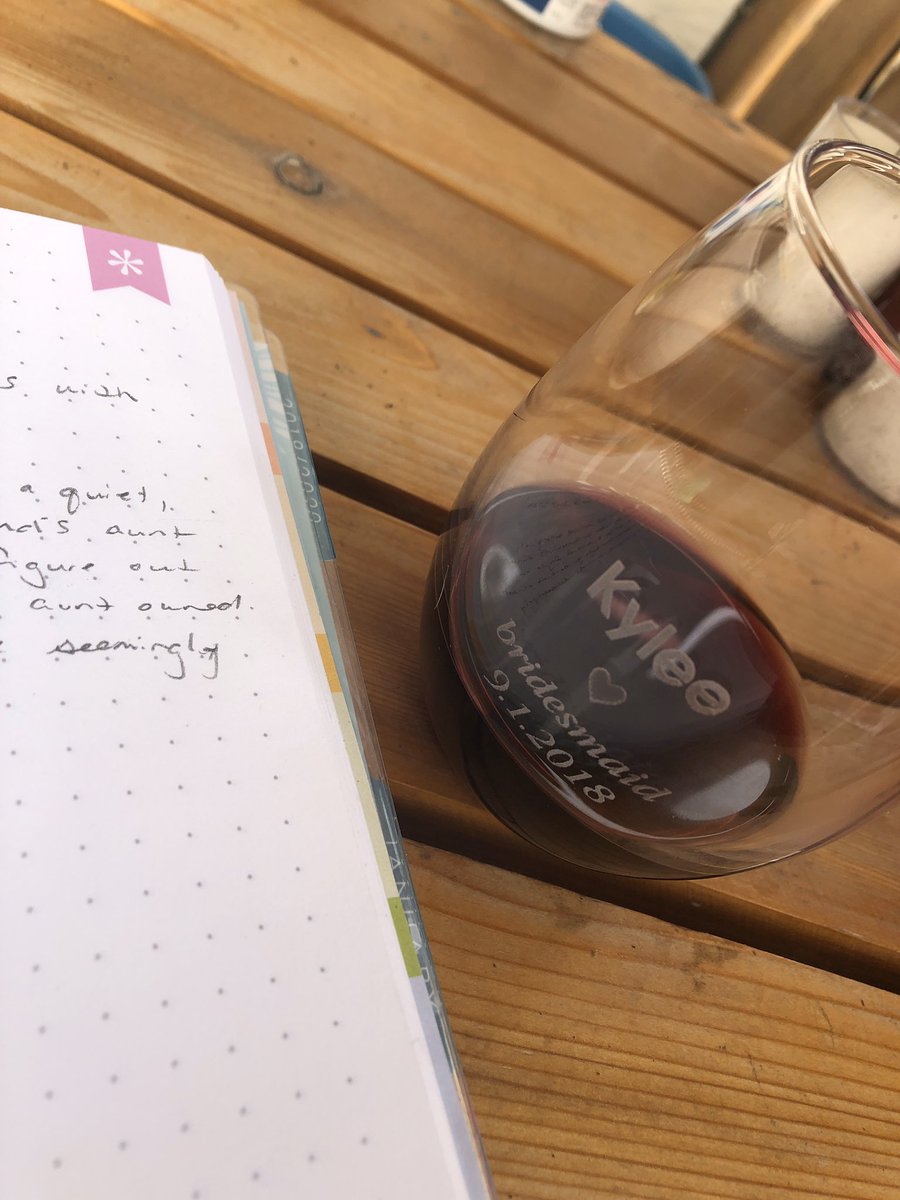 s with
a quiet,
nd's aunt
figure out
aunt owned.
seemingly
2019/2020
JANUARY
Kylee
bridesmaid
9.1.2018